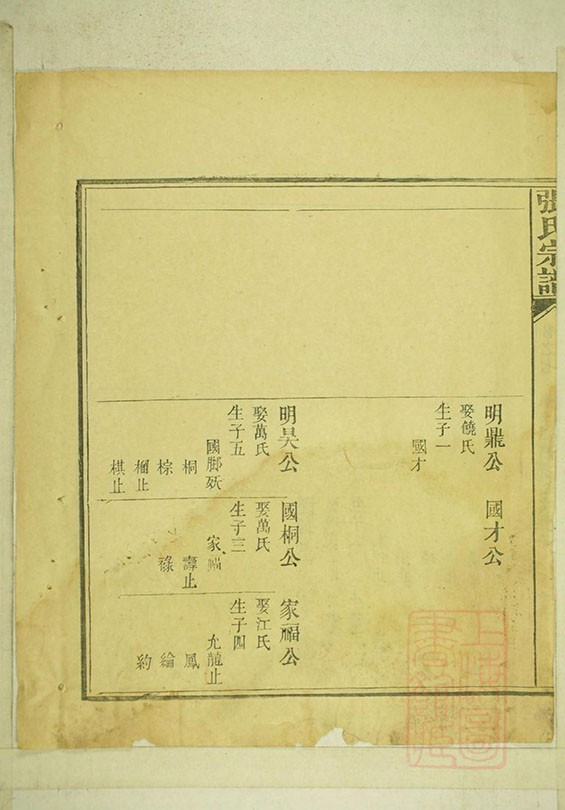 張氏宗譜
明鼎公
娶饒氏
生子一
國才
國才公
明昊公
娶萬氏
生子五
國郷殀
桐
棕
榴止
棋止
國桐公
娶萬氏
生子三
家福
壽止
祿
家福公
娶江氏
生子四
允龍止
鳳
綸
約